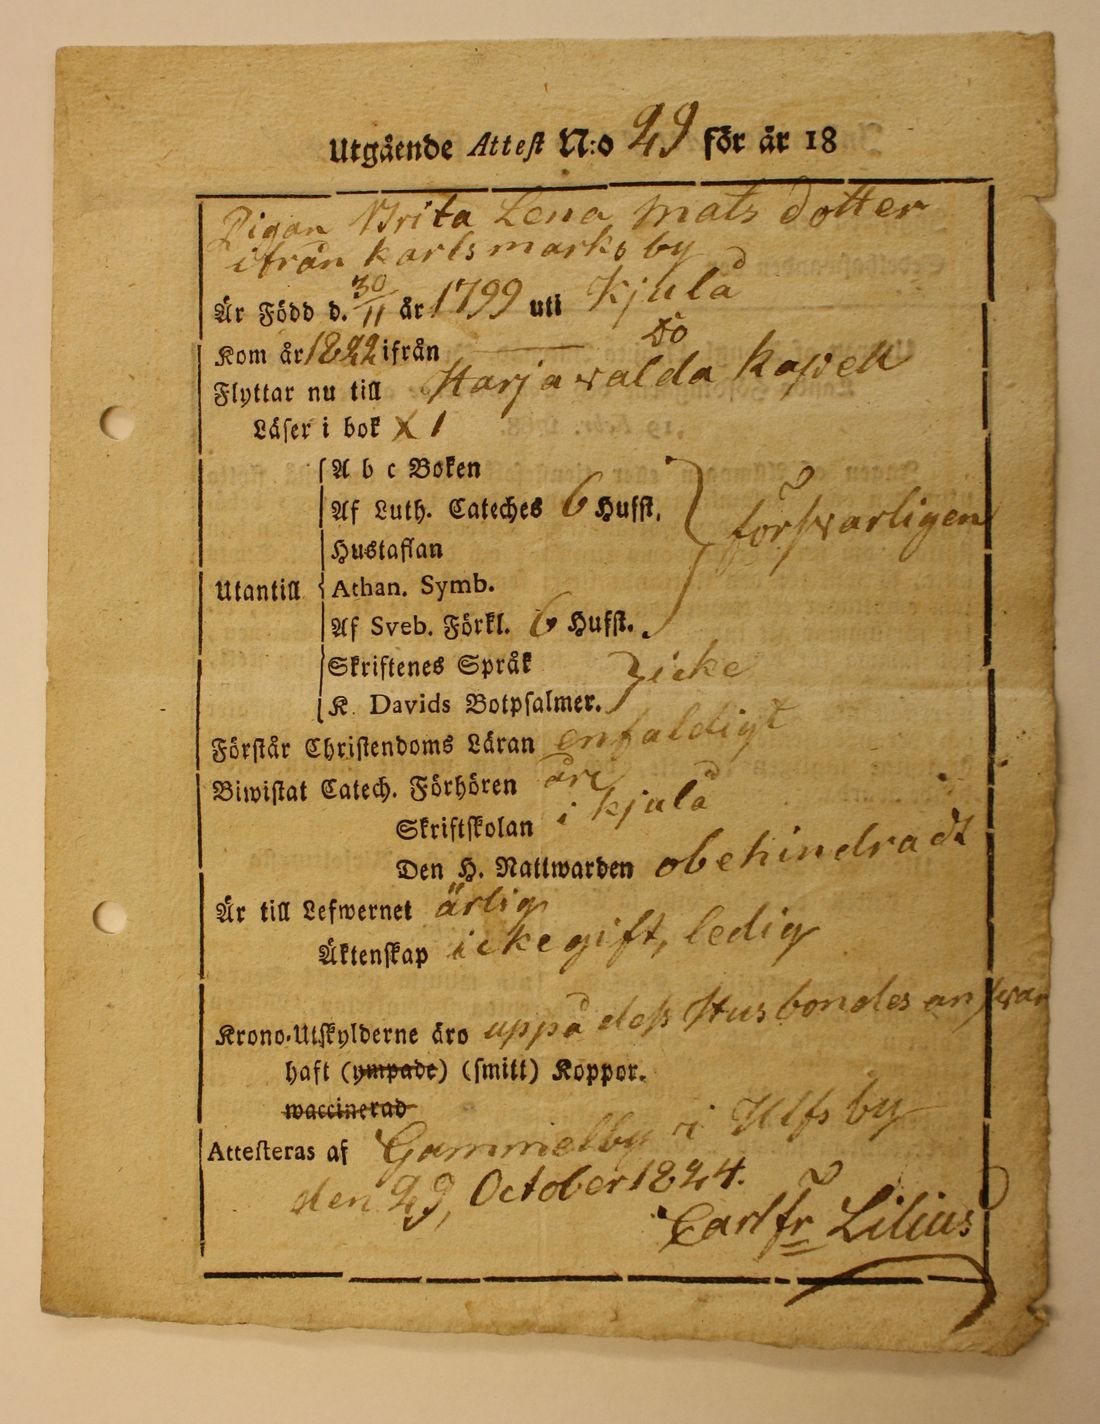 Utgående Attest N:o 29 för år 18
Pigan Brita Lena Mats dotter
ifrån Karlsmarks by
Är Född d. 30/11 år 1799 uti Kjula
Kom år 1822 ifrån —— Do
Flyttar nu till Harjawalda Kapell
Läser i bok X 1
A b c Boken
Af Luth. Cateches 6 Hufst,
Hustaflan
försvarligen
Utantill Athan. Symb.
Af Sveb. Förkl. 6 Hufst.
Skriftenes Språk
icke
K. Davids Botpsalmer.
Förstår Christendoms Läran enfaldigt
Biwistat Catech. Förhören
Skriftskolan i Kjula
Den H. Nattwarden obehindradt
Är till Lefwernet ärlig
Äktenskap icke gift, ledig
Krono-Utskylderne äro uppå dess Husbondes answar
haft (ympade) (smitt) Koppor.
waccinerad
Attesteras af Gammelby i Ulfsby
den 29, October 1824.
Carl Fr Lilius